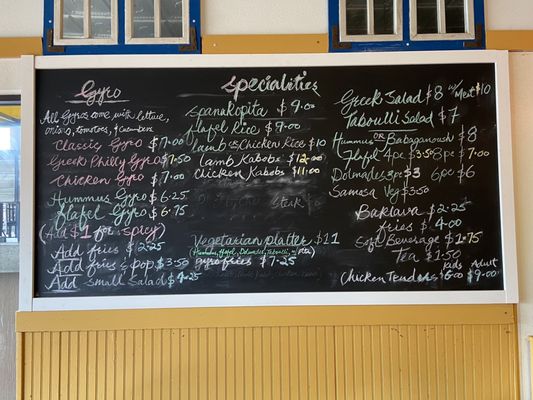 Gyro
All Gyros come with lettuce,
onions, tomatoes, & cucumbers
Classic Gyro $7.00
Greek Philly Gyro $7.50
Chicken Gyro $7.00
Hummus Gyro $6.25
Flafel Gyro $6.75
(Add $1 for spicy)
Add fries $2.25
Add fries & pop $3.50
Add small Salad $4.25
Specialties
Spanakopita $9.00
flafel Rice $9.00
lamb or Chicken Rice $10
lamb Kabobs $12.00
Chicken Kabobs $11.00
Steak
Vegetarian platter $11
(Hummus, flafel, Dolmades, Tabouli, Pita)
gyro fries $7.25
Greek Salad $8 w/ Meat $10
Taboulli Salad $7
Hummus OR Babaganoush $8
Flafel 4pc $3.50 8pc $7.00
Dolmades 3pc $3 6pc $6
Samosa Veg $3.50
Baklava $2.25
fries $4.00
Soft Beverage $1.75
Tea $1.50
Kids Adult
Chicken Tenders $6.00 $9.00